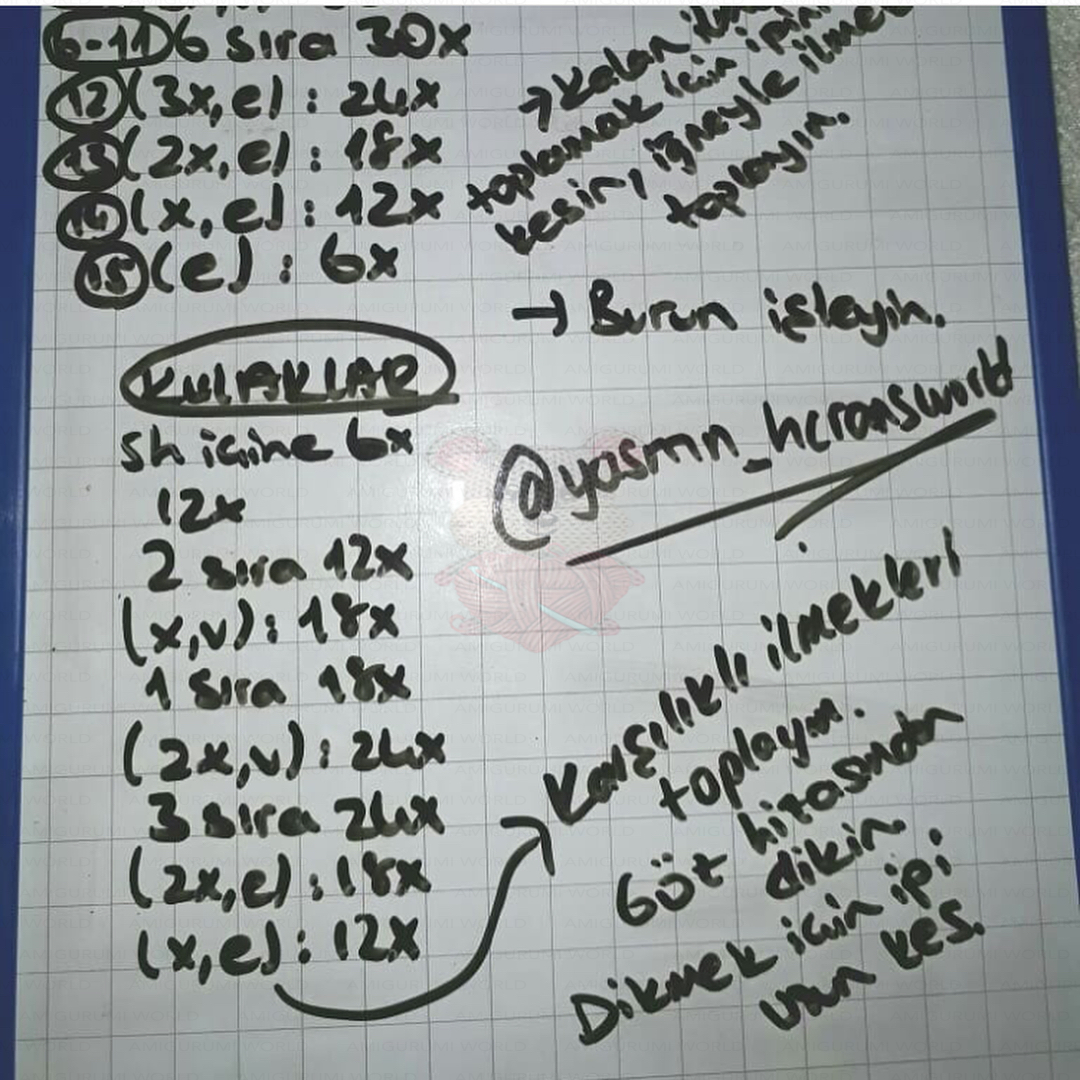 6-11) 6 sıra 30x
12 (3x,e) : 24x
13 (2x,e) : 18x
14 (x,e) : 12x
15 (e) : 6x
→ Kalan
toplamak için ipini
kesin, iğneyle
toplayın.
→ Burun işleyin.
KULAKLAR
sh içine 6x
12x
2 sıra 12x
(x,v) : 18x
1 sıra 18x
(2x,v) : 24x
3 sıra 24x
(2x,e) : 18x
(x,e) : 12x
@yasmn_hcransworld
Karşılıklı ilmekleri
toplayın.
Göz hizasından
dikin.
Dikmek için ipi
uzun kes.
AMIGURUMI WORLD